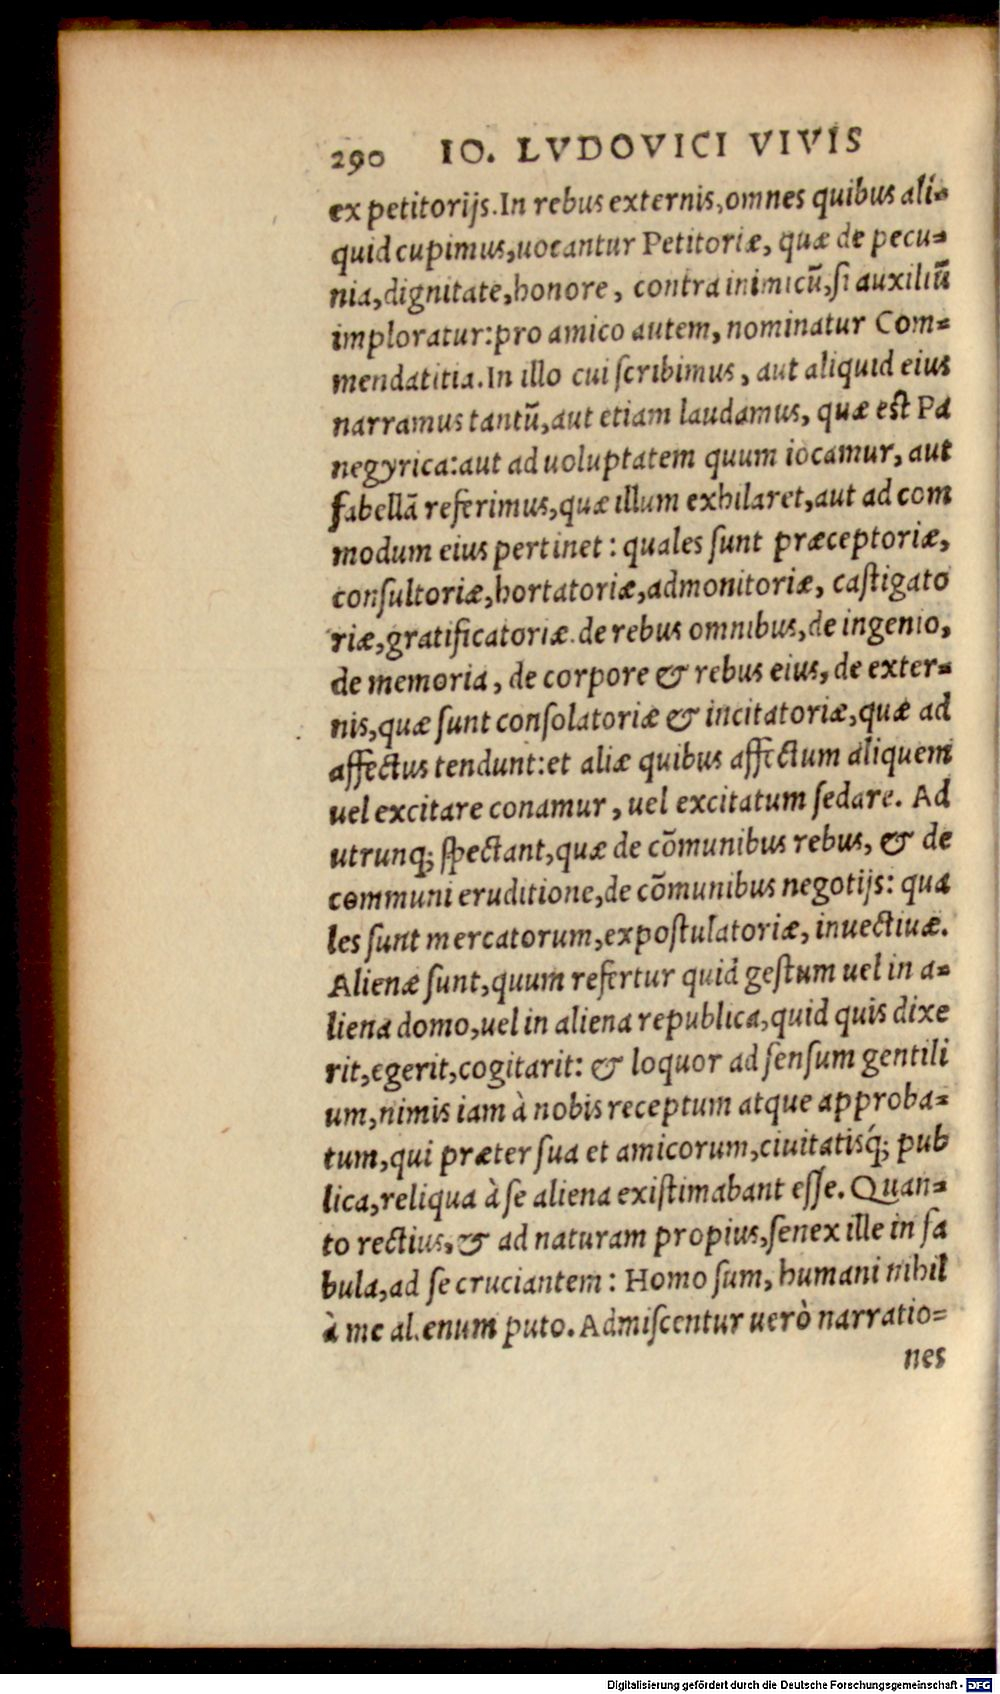 290 IO. LVDOVICI VIVIS
ex petitorijs. In rebus externis, omnes quibus ali-
quid cupimus, uocantur Petitoriæ, quæ de pecu-
nia, dignitate, honore, contra inimicū, si auxiliū
imploratur: pro amico autem, nominatur Com-
mendatitia. In illo cui scribimus, aut aliquid eius
narramus tantū, aut etiam laudamus, quæ est Pa
negyrica: aut ad uoluptatem quum iocamur, aut
fabellā referimus, quæ illum exhilaret, aut ad com
modum eius pertinet: quales sunt præceptoriæ,
consultoriæ, hortatoriæ, admonitoriæ, castigato
riæ, gratificatoriæ. de rebus omnibus, de ingenio,
de memoria, de corpore & rebus eius, de exter-
nis, quæ sunt consolatoriæ & incitatoriæ, quæ ad
affectus tendunt: et aliæ quibus affectum aliquem
uel excitare conamur, uel excitatum sedare. Ad
utrunq; spectant, quæ de cōmunibus rebus, & de
communi eruditione, de cōmunibus negotijs: qua
les sunt mercatorum, expostulatoriæ, inuectiuæ.
Alienæ sunt, quum refertur quid gestum uel in a-
liena domo, uel in aliena republica, quid quis dixe
rit, egerit, cogitarit: & loquor ad sensum gentili
um, nimis iam à nobis receptum atque approba-
tum, qui præter sua et amicorum, ciuitatisq́; pub
lica, reliqua à se aliena existimabant esse. Quan-
to rectius, & ad naturam propius, senex ille in fa
bula, ad se cruciantem: Homo sum, humani nihil
à me alienum puto. Admiscentur uerò narratio-
nes
Digitalisierung gefördert durch die Deutsche Forschungsgemeinschaft - DFG